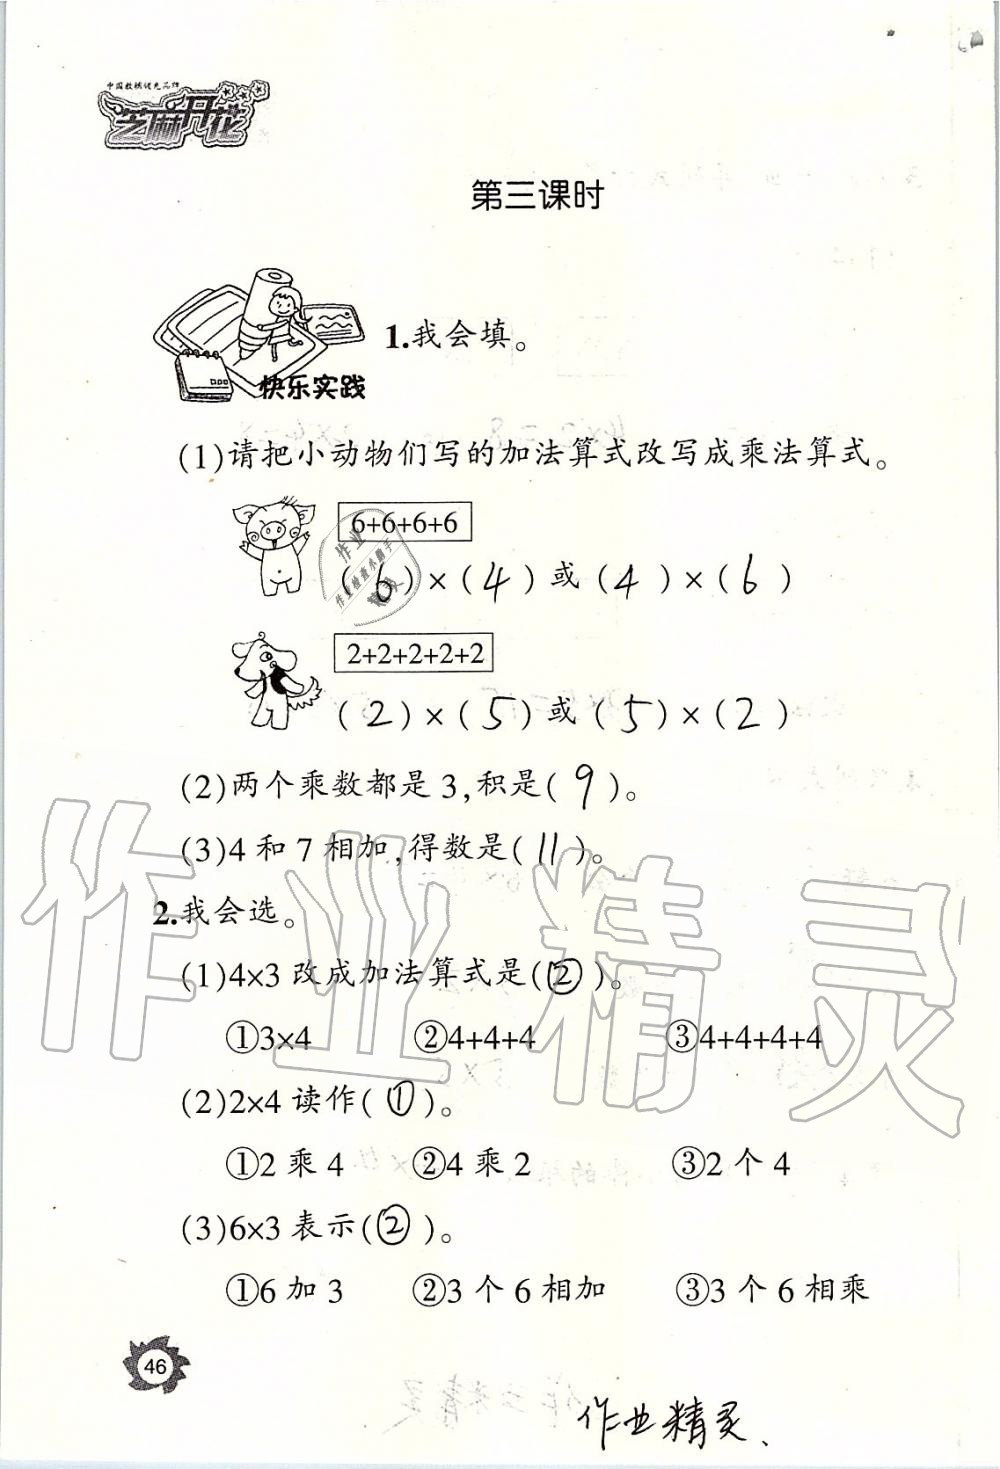 中国教辅领先品牌
芝麻开花
第三课时
快乐实践
1.我会填。
(1)请把小动物们写的加法算式改写成乘法算式。
6+6+6+6
(6)×(4)或(4)×(6)
2+2+2+2+2
(2)×(5)或(5)×(2)
(2)两个乘数都是3,积是(9)。
(3)4和7相加,得数是(11)。
2.我会选。
(1)4×3改成加法算式是(②)。
①3×4 ②4+4+4 ③4+4+4+4
(2)2×4读作(①)。
①2乘4 ②4乘2 ③2个4
(3)6×3表示(②)。
①6加3 ②3个6相加 ③3个6相乘
46
作业精灵
作业精灵、